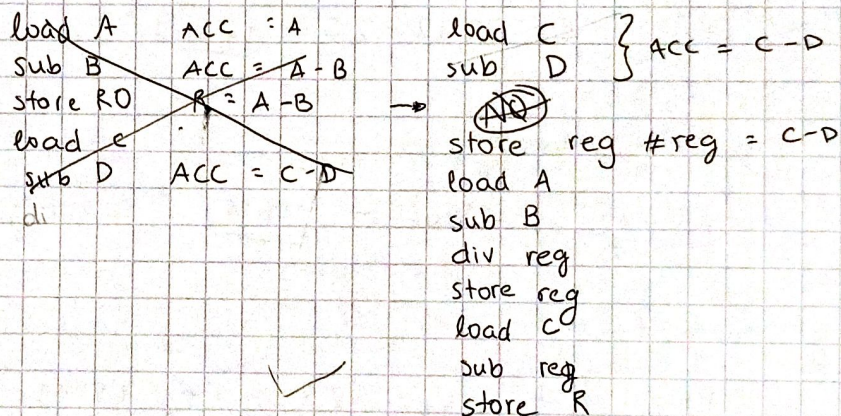 load A ACC = A
sub B ACC = A - B
store R0 R = A - B
load c
sub D ACC = C - D
di
load C
sub D } ACC = C - D
→ NO
store reg #reg = C-D
load A
sub B
div reg
store reg
load C
sub reg
store R